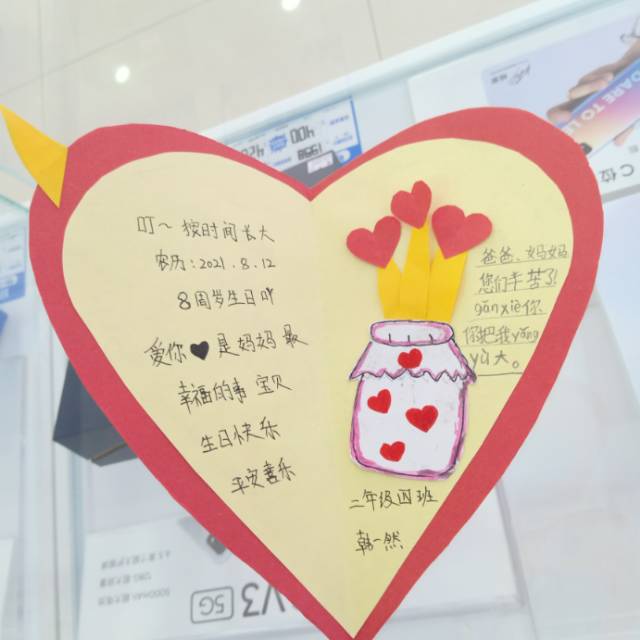 叮~ 按时间长大
农历:2021.8.12
8周岁生日吖
爱你♥是妈妈最
幸福的事 宝贝
生日快乐
平安喜乐
爸爸、妈妈
您们辛苦了!
gǎnxiè你
你把我yǎng
yù大。
二年级四班
韩一然
V3
5G
5000mAh
128G
1998
400
C位